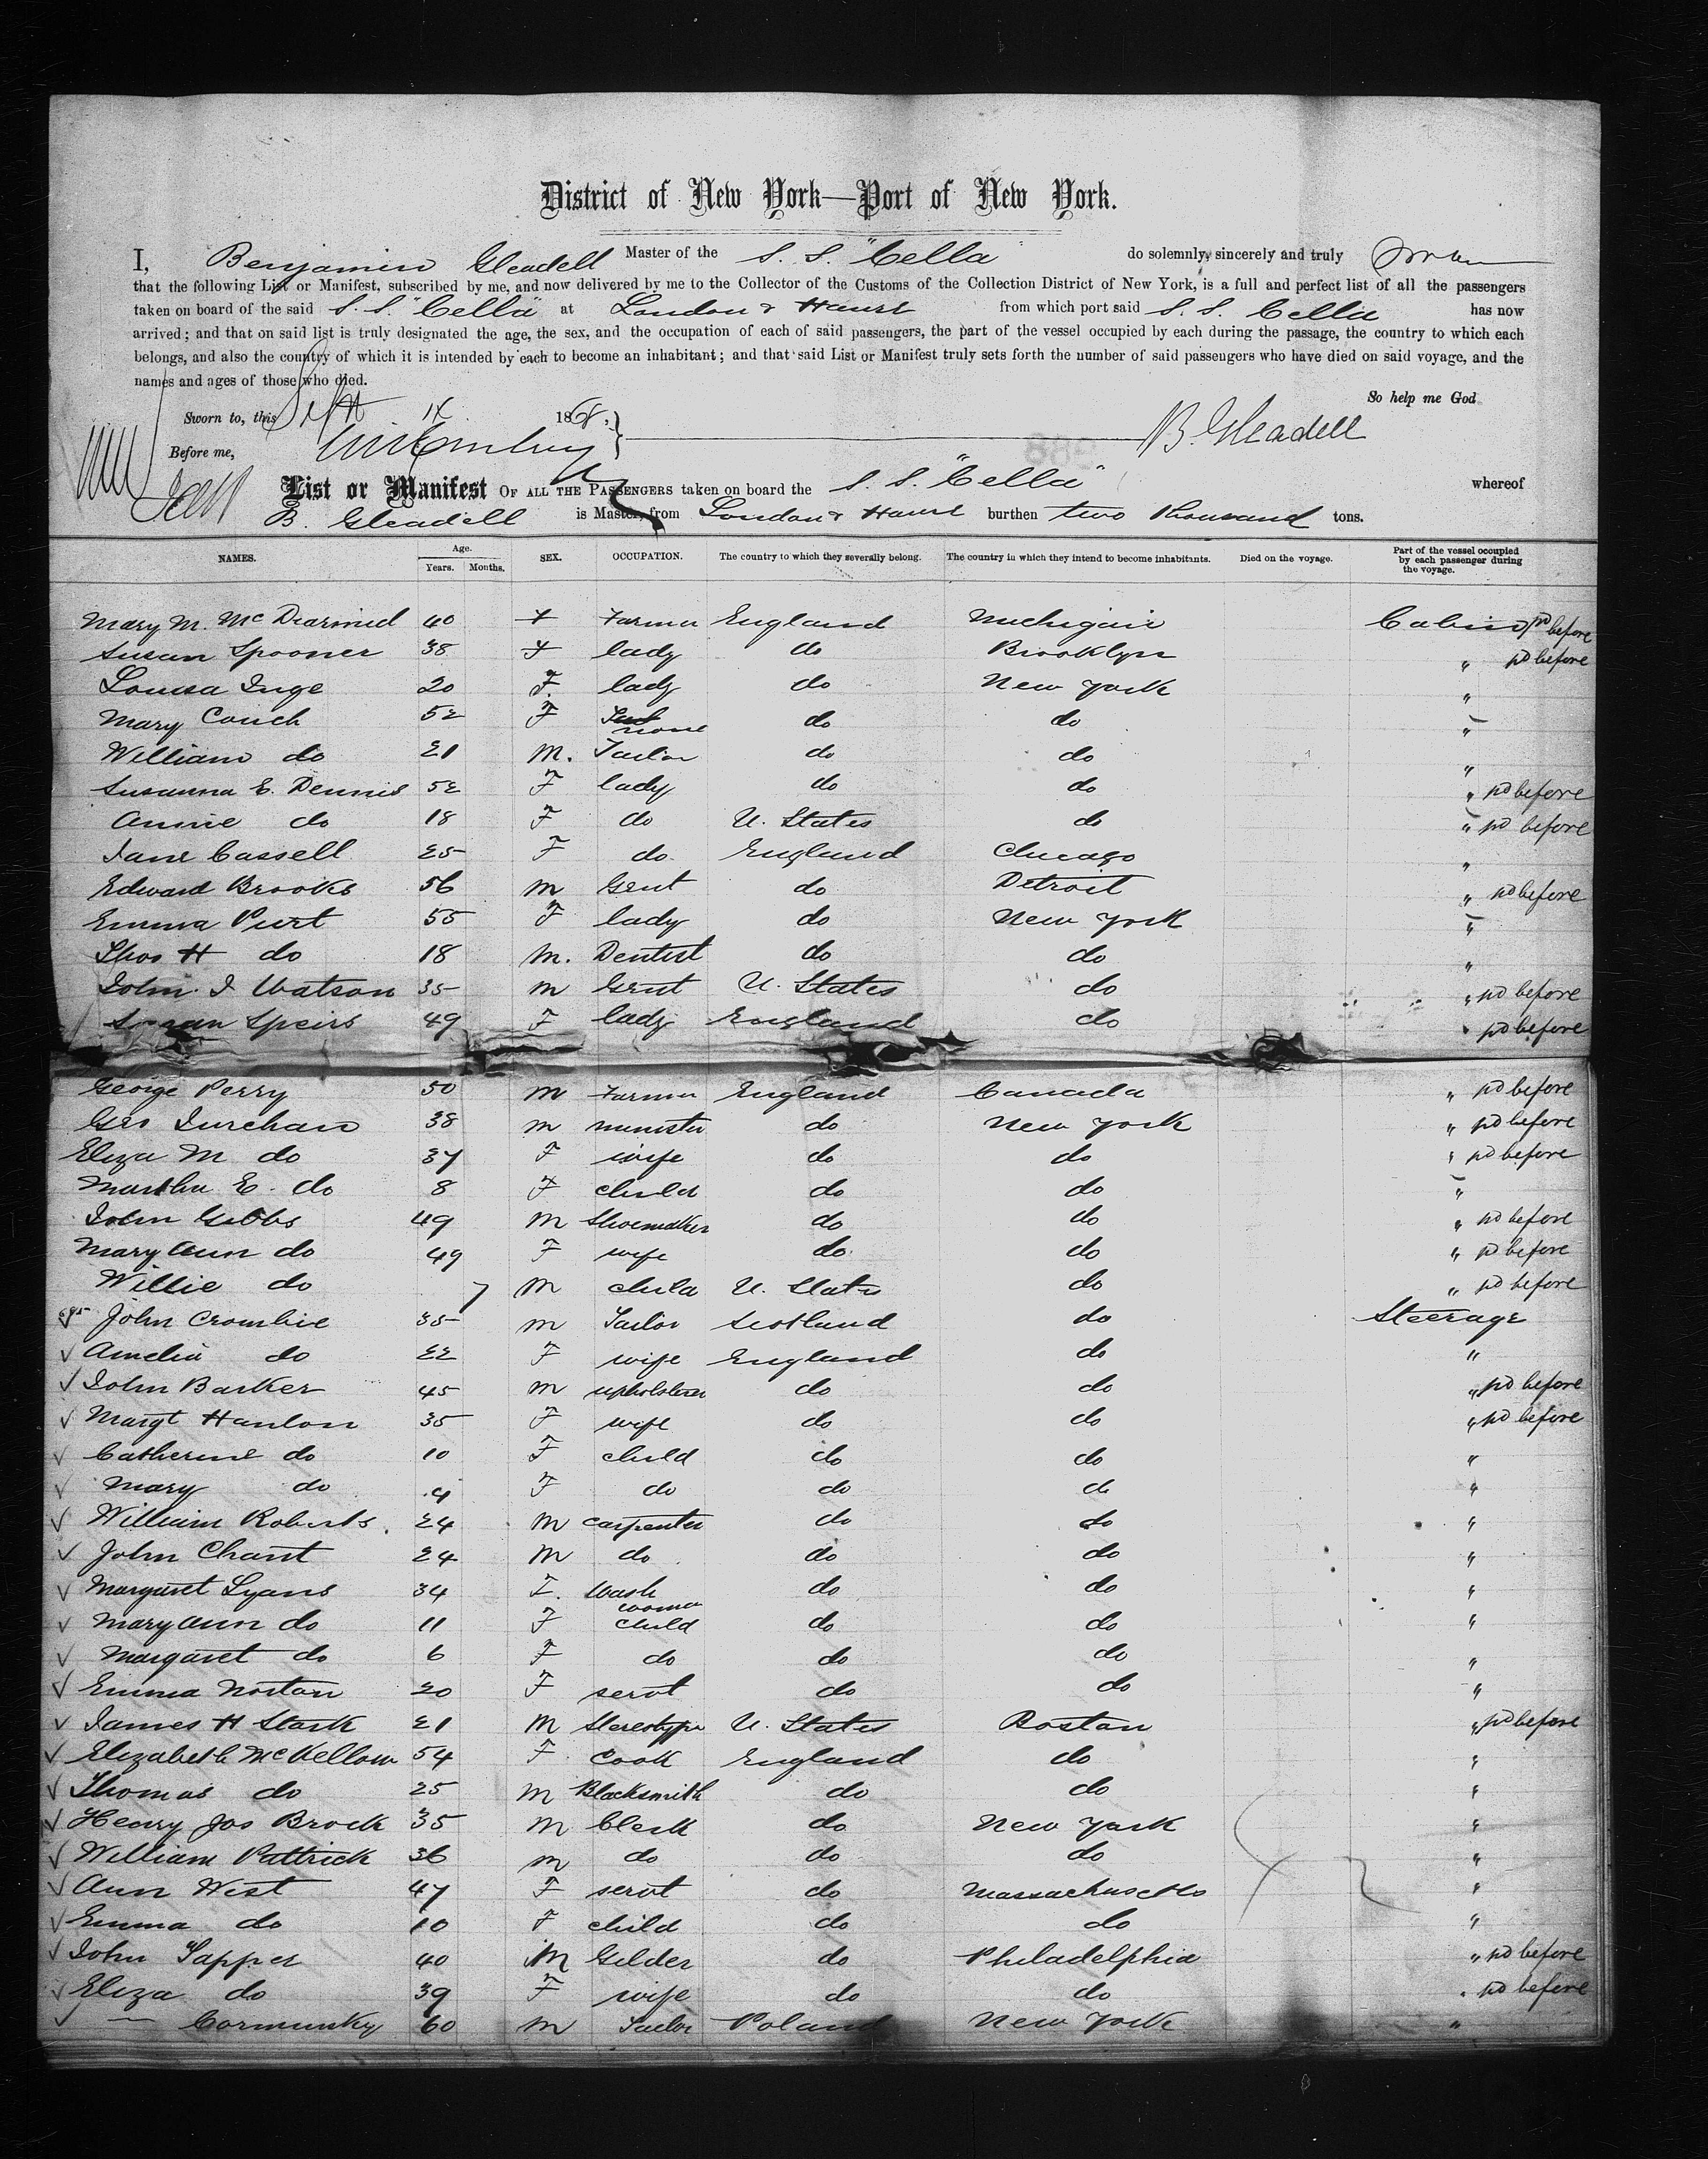 District of New York—Port of New York.
I, Benjamin Gleadell Master of the S. S. "Cella" do solemnly, sincerely and truly swear
that the following List or Manifest, subscribed by me, and now delivered by me to the Collector of the Customs of the Collection District of New York, is a full and perfect list of all the passengers
taken on board of the said S. S. "Cella" at London & Havre from which port said S. S. Cella has now
arrived; and that on said list is truly designated the age, the sex, and the occupation of each of said passengers, the part of the vessel occupied by each during the passage, the country to which each
belongs, and also the country of which it is intended by each to become an inhabitant; and that said List or Manifest truly sets forth the number of said passengers who have died on said voyage, and the
names and ages of those who died.
So help me God
Sworn to, this Sept 14 1868, B. Gleadell
Before me,
List or Manifest OF ALL THE PASSENGERS taken on board the S. S. "Cella" whereof
B. Gleadell is Master, from London & Havre burthen two thousand tons.
NAMES. Age. Years. Months. SEX. OCCUPATION. The country to which they severally belong. The country in which they intend to become inhabitants. Died on the voyage. Part of the vessel occupied by each passenger during the voyage.
Mary M. McDiarmid 40 F Farmer England Michigan Cabin pd before
Susan Spooner 38 F lady do Brooklyn " pd before
Louisa Inge 20 F. lady do New York "
Mary Couch 52 F none do do "
William do 21 M. Tailor do do "
Susanna E. Dennis 52 F lady do do " pd before
Annie do 18 F do U. States do " pd before
Jane Cassell 25 F do. England Chicago "
Edward Brooks 56 m Gent do Detroit " pd before
Emma Purt 55 F lady do New York "
Thos H do 18 m. Dentist do do "
John J Watson 35 m Gent U. States do " pd before
Susan Speirs 49 F lady England do " pd before
George Perry 50 m Farmer England Canada " pd before
Geo Durchan 38 m minister do New York " pd before
Eliza M do 37 F wife do do " pd before
Martha E. do 8 F child do do "
John Gibbs 49 m Shoemaker do do " pd before
Mary Ann do 49 F wife do do " pd before
Willie do 7 m child U. States do " pd before
John Crombie 35 m Tailor Scotland do Steerage
√ Amelia do 22 F wife England do "
√ John Barker 45 m upholsterer do do " pd before
√ Margt Hanlon 35 F wife do do " pd before
√ Catherine do 10 F child do do "
√ Mary do 4 F do do do "
√ William Roberts. 24 m carpenter do do "
√ John Chant 24 m do do do "
√ Margaret Lyans 34 F. Wash woman do do "
√ Mary Ann do 11 F child do do "
√ Margaret do 6 F do do do "
√ Emma Norton 20 F servt do do "
√ James H Stark 21 m Stereotype U. States Boston " pd before
√ Elizabeth McKellow 54 F Cook England do "
√ Thomas do 25 m Blacksmith do do "
√ Henry Jos Brock 35 m Clerk do New York "
√ William Pattrick 36 m do do do "
√ Ann West 47 F servt do Massachusetts "
√ Emma do 10 F child do do "
√ John Tapper 40 M Gilder do Philadelphia " pd before
√ Eliza do 39 F wife do do " pd before
√ — Cormunky 60 m Tailor Poland New York "